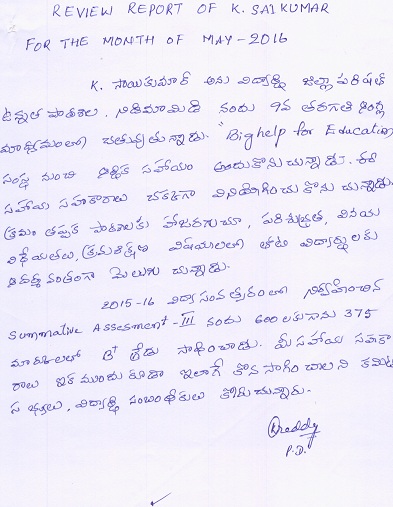 REVIEW REPORT OF K. SAI KUMAR
FOR THE MONTH OF MAY-2016
K. సాయికుమార్ అను విద్యార్థి జిల్లా పరిషత్
ఉన్నత పాఠశాల, నిడిమామిడి నందు 9వ తరగతి ఇంగ్లీషు
మాధ్యమంలో చదువుతున్నాడు. "Bighelp for Education"
సంస్థ నుంచి ఆర్థిక సహాయం అందుకొనుచున్నాడు. ఈ
సహాయ సహకారాలు చక్కగా వినియోగించు కొను చున్నాడు.
క్రమం తప్పక పాఠశాలకు హాజరగుచూ, పరిశుభ్రత, వినయ
విధేయతలు, క్రమశిక్షణ విషయాలలో తోటి విద్యార్థులకు
ఆదర్శవంతంగా మెలుగు చున్నాడు.
2015-16 విద్యాసంవత్సరంలో నిర్వహించిన
Summative Assesment-III నందు 600 లకుగాను 375
మార్కులతో B+ గ్రేడు సాధించాడు. మీ సహాయ సహకా
రాలు ఇక ముందు కూడా ఇలాగే కొనసాగించాలని కమిటి
సభ్యులు, విద్యార్థి సంబంధీకులు కోరుచున్నారు.
Reddy
P.D.